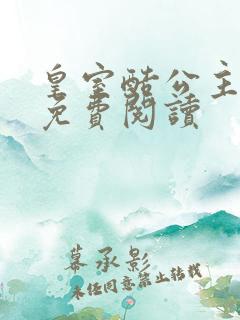 皇室酷公主
免費閱讀
幕承影
未經同意禁止轉載